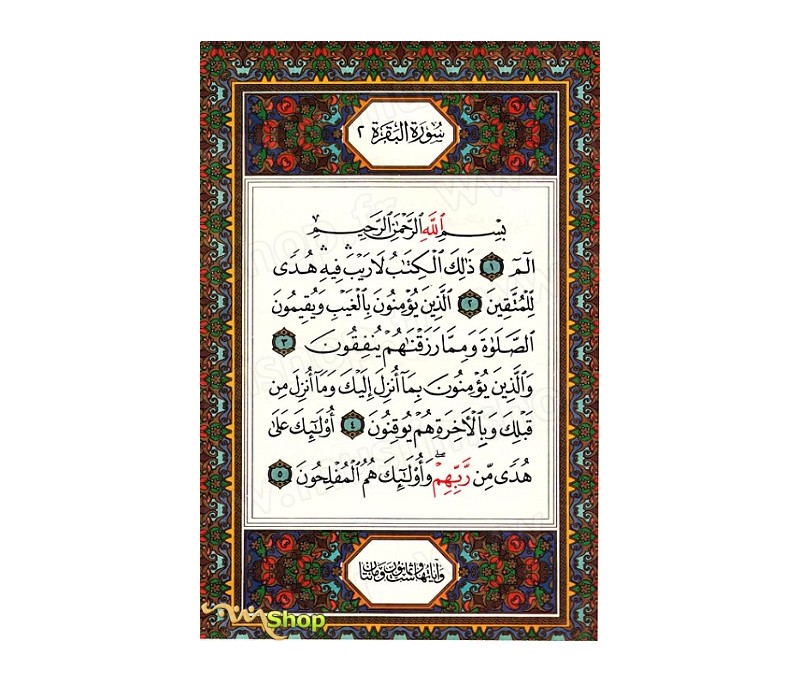 سُورَةُ البَقَرَةِ ٢
بِسْمِ اللَّهِ الرَّحْمَٰنِ الرَّحِيمِ
الٓمٓ ١ ذَٰلِكَ الْكِتَابُ لَا رَيْبَ ۛ فِيهِ ۛ هُدًى
لِّلْمُتَّقِينَ ٢ الَّذِينَ يُؤْمِنُونَ بِالْغَيْبِ وَيُقِيمُونَ
الصَّلَوٰةَ وَمِمَّا رَزَقْنَٰهُمْ يُنفِقُونَ ٣
وَالَّذِينَ يُؤْمِنُونَ بِمَآ أُنزِلَ إِلَيْكَ وَمَآ أُنزِلَ مِن
قَبْلِكَ وَبِالْآخِرَةِ هُمْ يُوقِنُونَ ٤ أُوْلَٰٓئِكَ عَلَىٰ
هُدًى مِّن رَّبِّهِمْ ۖ وَأُوْلَٰٓئِكَ هُمُ الْمُفْلِحُونَ ٥
وَآيَاتُهَا سِتٌّ وَثَمَانُونَ وَمِائَتَانِ
Shop